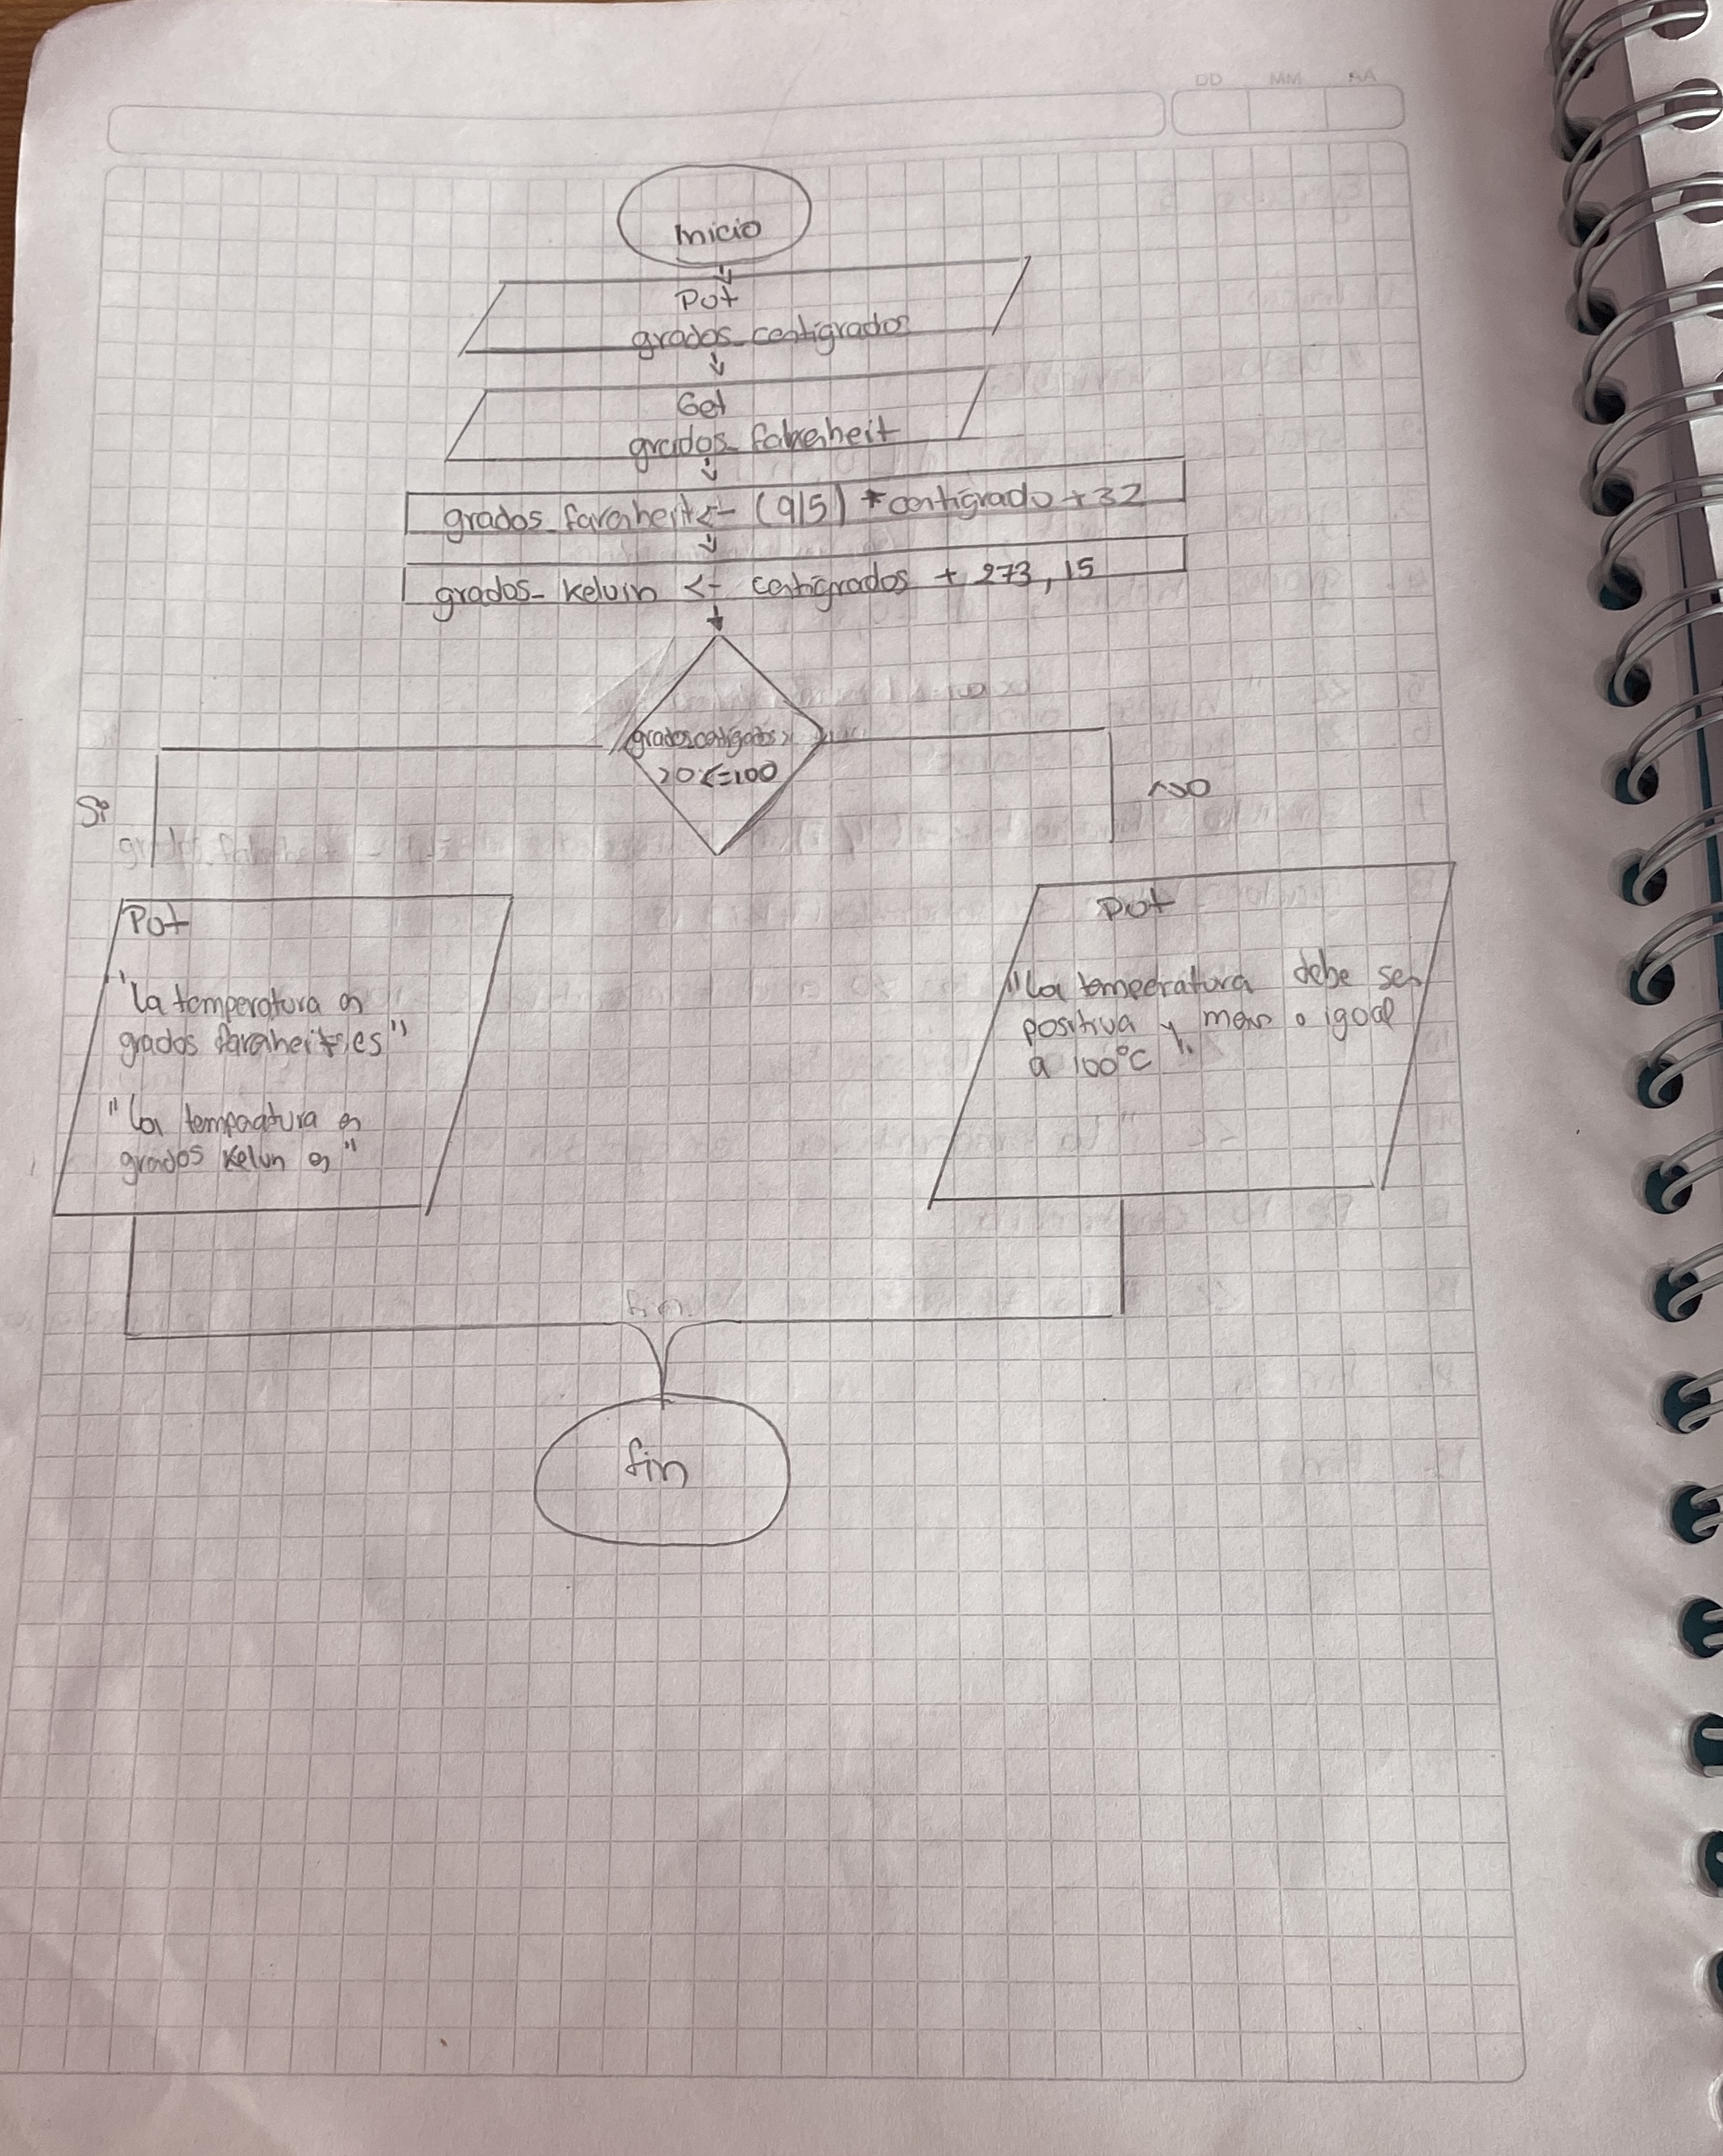 DD MM AA
Inicio
Put
grados_centigrados
Get
grados_fahrenheit
grados_farenheit <- (9/5) * centigrado + 32
grados_kelvin <- centigrados + 273,15
grados centigrados >
>0 <=100
Si
NO
Put
"la temperatura en
grados farenheit es"
"la temperatura en
grados kelvin es"
Put
"la temperatura debe ser
positiva y menor o igual
a 100°C"
fin
fin